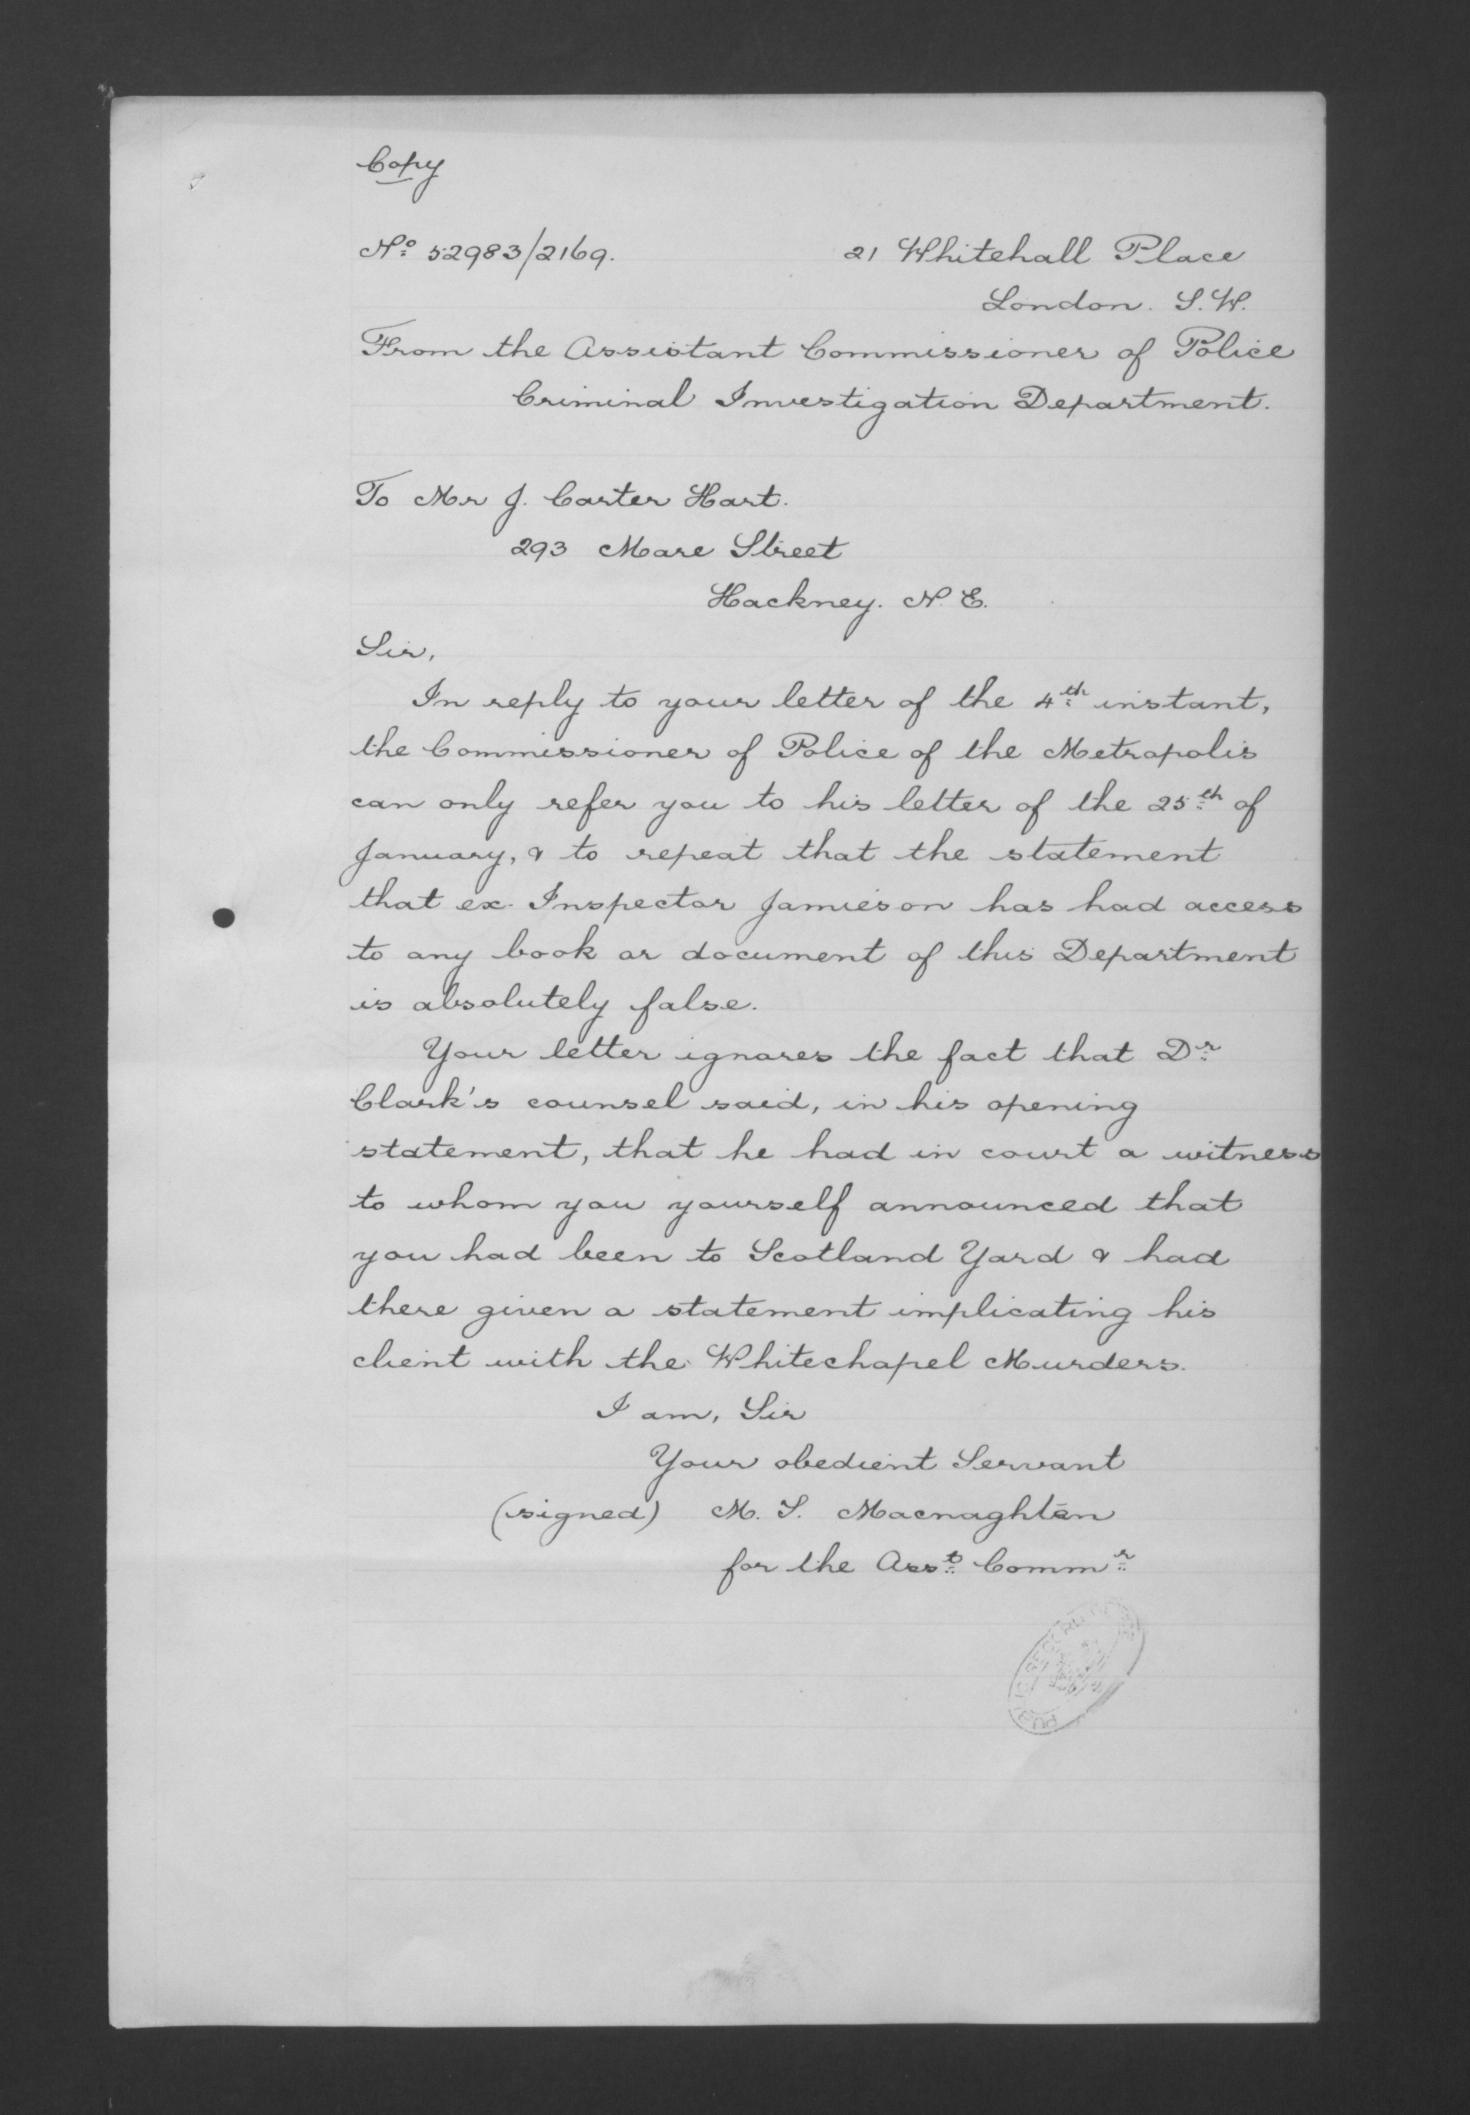 Copy
No. 52983/2169. 21 Whitehall Place
London. S.W.
From the Assistant Commissioner of Police
Criminal Investigation Department.
To Mr J. Carter Hart.
293 Mare Street
Hackney. N. E.
Sir,
In reply to your letter of the 4th instant,
the Commissioner of Police of the Metropolis
can only refer you to his letter of the 25th of
January, & to repeat that the statement
that ex. Inspector Jamieson has had access
to any book or document of this Department
is absolutely false.
Your letter ignores the fact that Dr
Clark's counsel said, in his opening
statement, that he had in court a witness
to whom you yourself announced that
you had been to Scotland Yard & had
there given a statement implicating his
client with the Whitechapel Murders.
I am, Sir
Your obedient Servant
(signed) M. S. Macnaghten
for the Asst. Commr.